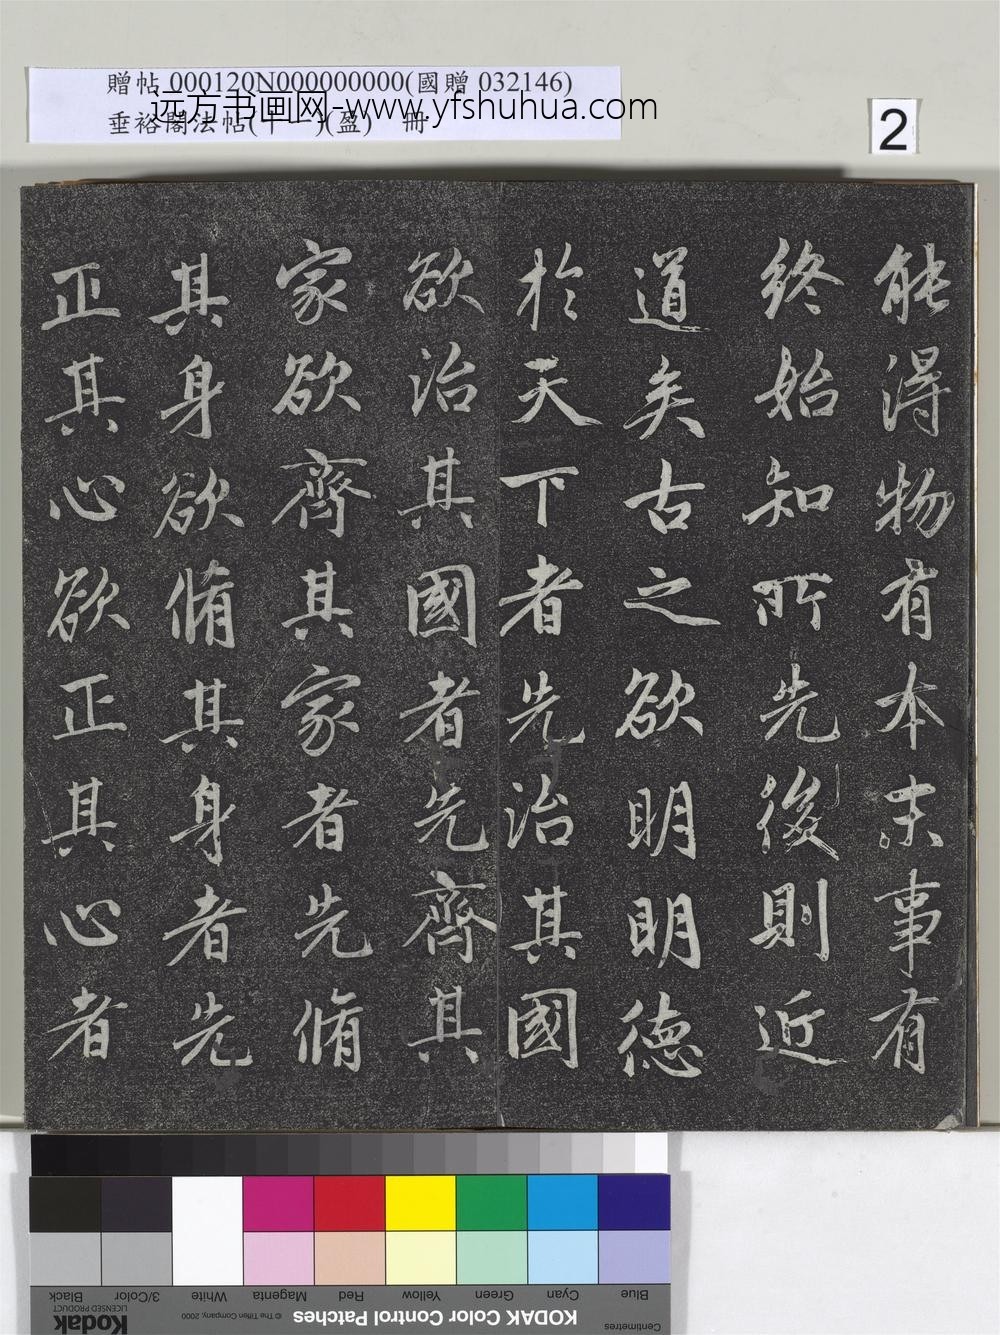 贈帖 000120N000000000(國贈 032146)
垂裕閣法帖(十一)(盈) 冊
远方书画网-www.yfshuhua.com
2
能得物有本末事有
終始知所先後則近
道矣古之欲明明德
於天下者先治其國
欲治其國者先齊其
家欲齊其家者先脩
其身欲脩其身者先
正其心欲正其心者
Black
3/Color
White
Magenta
Red
Yellow
Green
Cyan
Blue
Kodak
LICENSED PRODUCT
© The Tiffen Company, 2000
KODAK Color Control Patches
Centimetres